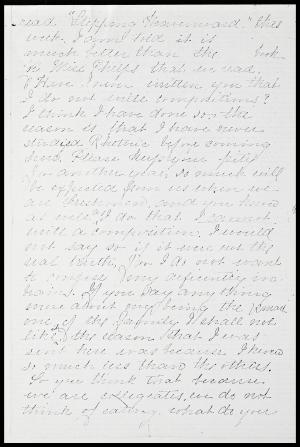 read "Stepping Heavenward." this
week. I am told it is
much better than the book
by Miss Phelps that we read.
Have I ever written you that
I do not write compositions?
I think I have done so. The
reason is that I have never
studied Rhetoric before coming
here. Please keep your pity
for another year, so much will
be expected from us when we
are and you know
as well as I do that I cannot
write a composition. I would
not say so if it were not the
real truth, for I do not want
to confess my deficiency in
brains. If you say any thing
more about my being the smart
one of the family I shall not
like it, the reason that I was
sent here was because I knew
so much less than the others.
Do you think that because
we are collegiates, we do not
think of eating. what do you